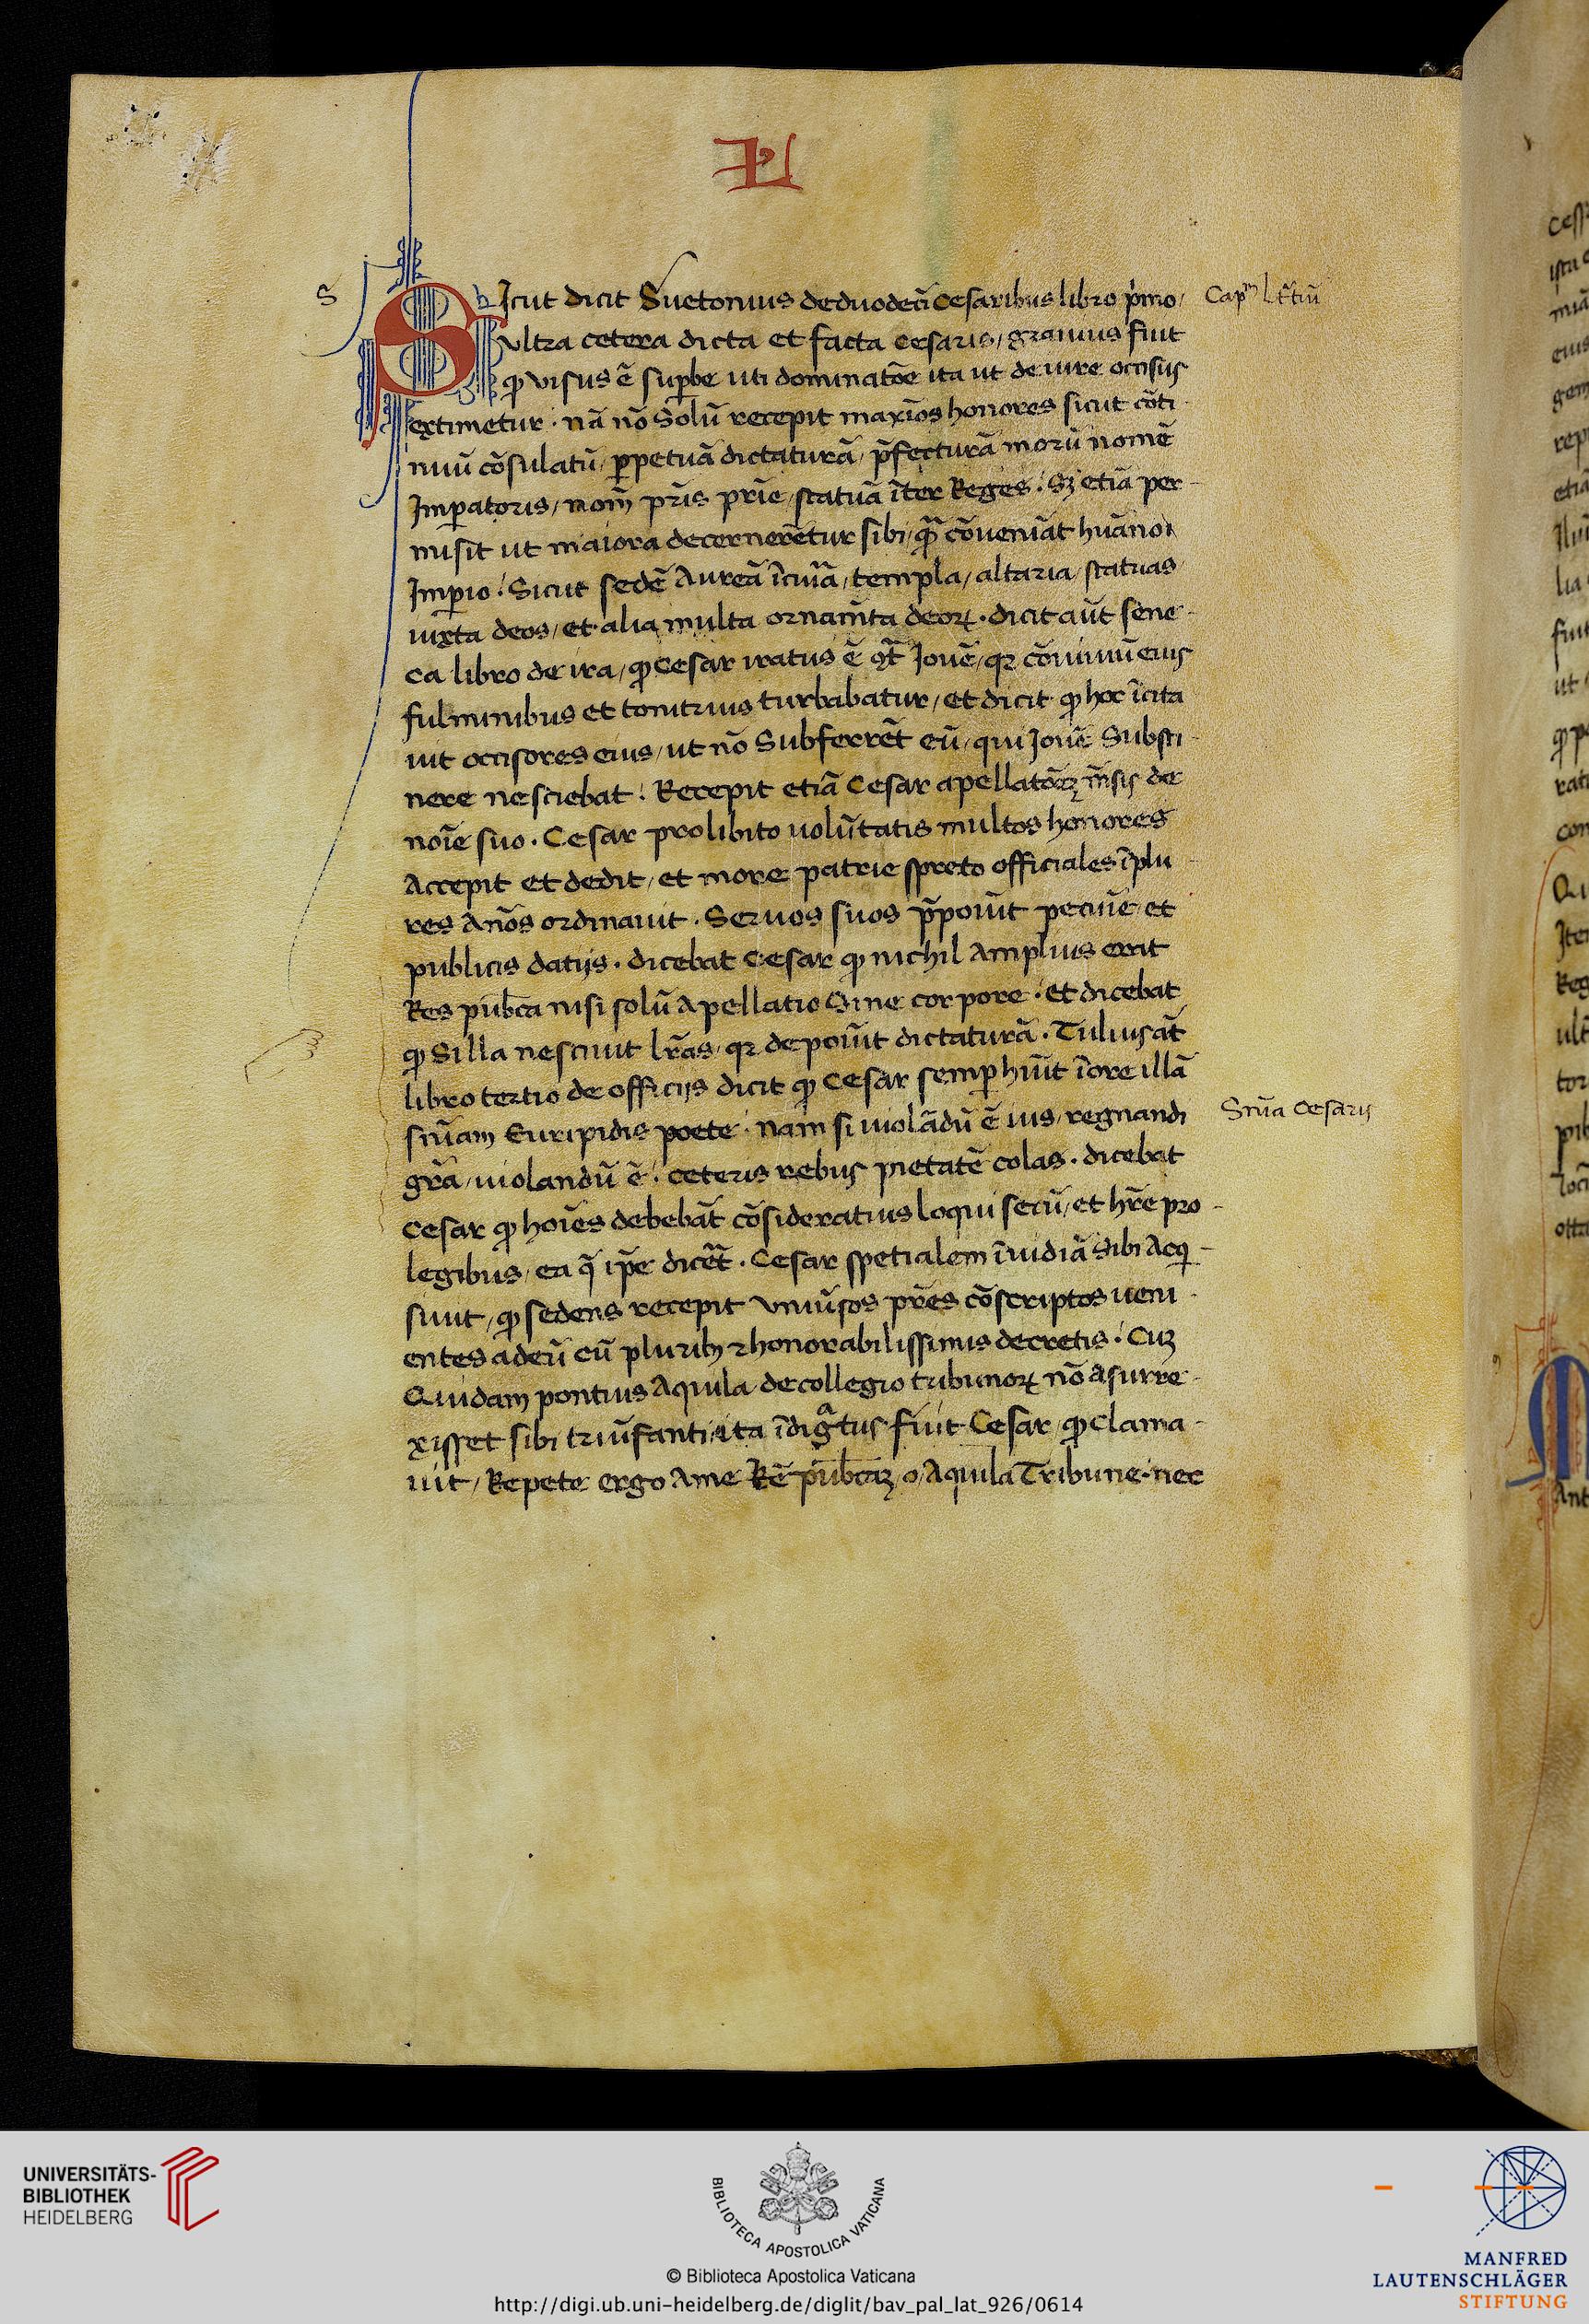 s
SIcut dicit Suetonius de duodecī Cesaribus libro p̍mo / Capᵐ Lt̃tiũ
ultra cetera dicta et facta cesaris / grauius fuit
ꝙ visus ẽ suꝑbe uti dominatõe ita ut de iure occisus
extimetur · nã nõ Solũ recepit maxīos honores sicut cõti
nuũ cõsulatũ / ꝑpetuã dictaturã / p̃fecturã morũ nomẽ
Imꝑatoris / nom̃ pr̃is pr̃ie / statuã ĩter Reges · Sꝫ etiã per
misit ut maiora decernerẽtur sibi / q̃ cõueniãt huãno
Imꝑio · Sicut sedẽ Aureã ĩ / templa / altaria / statuas
iuxta deos / et alia multa ornam̃ta deoꝝ · dicit aũt sene
ca libro de ira / ꝙ Cesar iratus ẽ Jouẽ / qꝛ cõuiuiũ eius
fulminibus et tonitruis turbabatur / et dicit ꝙ hoc ĩcita
uit occisores eius / ut nõ Subferrẽt eũ / qui Jouẽ Substi
nere nesciebat · Recepit etiã Cesar apellatõeꝫ m̃sis de
noĩe suo · Cesar pro libito uolũtatis multos honores
Accepit et dedit / et more patrie spreto officiales ĩ plu
res Anõs ordinauit · Seruos suos p̃poĩut pecuñe et
publicis datijs · dicebat Cesar ꝙ nichil Amplius erat
Res pub̃ca nisi solũ Apellatio Sine corpore · et dicebat
ꝙ Silla nesciuit lr̃as / qꝛ depoĩut dictaturã · Tulius aũt
libro tertio de officijs dicit ꝙ Cesar semꝑ hũit ĩ ore illã
sñiam Euripidis poete · nam si uiolãdũ ẽ ius / regnandi Sñia Cesaris
gr̃a / uiolandũ ẽ · ceteris rebus pietatẽ colas · dicebat
Cesar ꝙ hoĩes debebãt cõsideratius loqui secũ / et hr̃e pro
legibus / ea q̃ ip̃e dicẽt · Cesar spetialem ĩuidiã Sibi Acq
siuit / ꝙ sedens recepit vniũsos pr̃es cõscriptos ueni
entes ad eũ cũ pluribꝫ ⁊ honorabilissimis decretis · Cuꝫ
Quidam pontius Aquila de collegio tribunoꝝ nõ Asurre
xisset sibi triũfanti / ita ĩdigᵃtus fuit Cesar / ꝙ clama
uit / Repete ergo Ame Rẽ pub̃caꝫ / o / Aquila Tribune · nec
UNIVERSITÄTS-
BIBLIOTHEK
HEIDELBERG
BIBLIOTECA APOSTOLICA VATICANA
© Biblioteca Apostolica Vaticana
http://digi.ub.uni-heidelberg.de/diglit/bav_pal_lat_926/0614
MANFRED
LAUTENSCHLÄGER
STIFTUNG